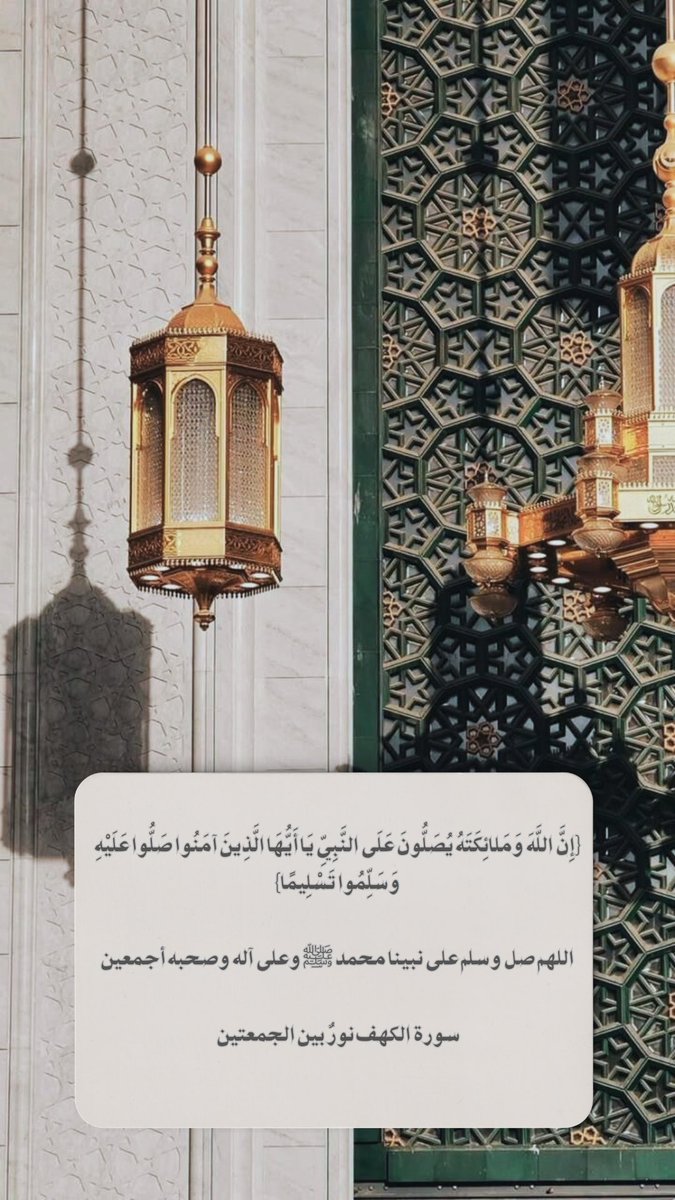 {إِنَّ اللَّهَ وَمَلائِكَتَهُ يُصَلُّونَ عَلَى النَّبِيِّ يَا أَيُّهَا الَّذِينَ آمَنُوا صَلُّوا عَلَيْهِ
وَسَلِّمُوا تَسْلِيمًا}
اللهم صل وسلم على نبينا محمد ﷺ وعلى آله وصحبه أجمعين
سورة الكهف نورٌ بين الجمعتين